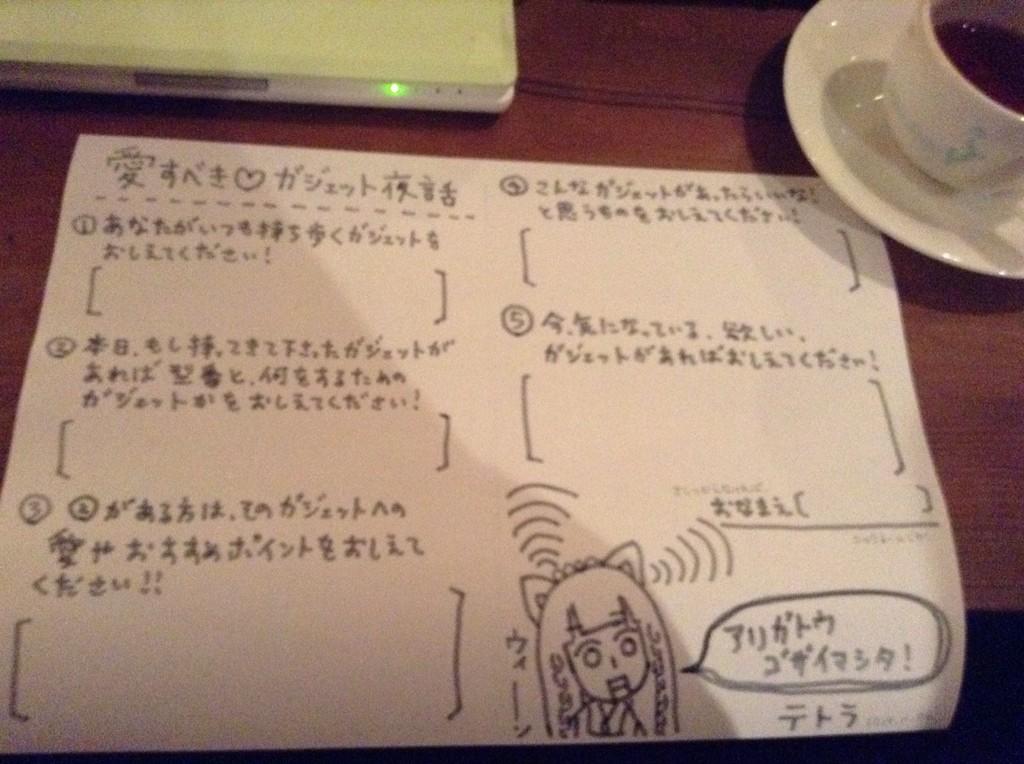 愛すべき♡ガジェット夜話
① あなたがいつも持ち歩くガジェットを
おしえてください!
② 本日、もし持ってきて下さったガジェットが
あれば 型番と、何をするための
ガジェットかを おしえてください!
③ ②がある方は、そのガジェットへの
愛や おすすめポイントをおしえて
ください!!
④ こんなガジェットがあったらいいな!
と思うものをおしえてください!
⑤ 今、気になっている、欲しい、
ガジェットがあればおしえてください!
おなまえ[ ]
ウィーン
アリガトウ
ゴザイマシタ!
テトラ